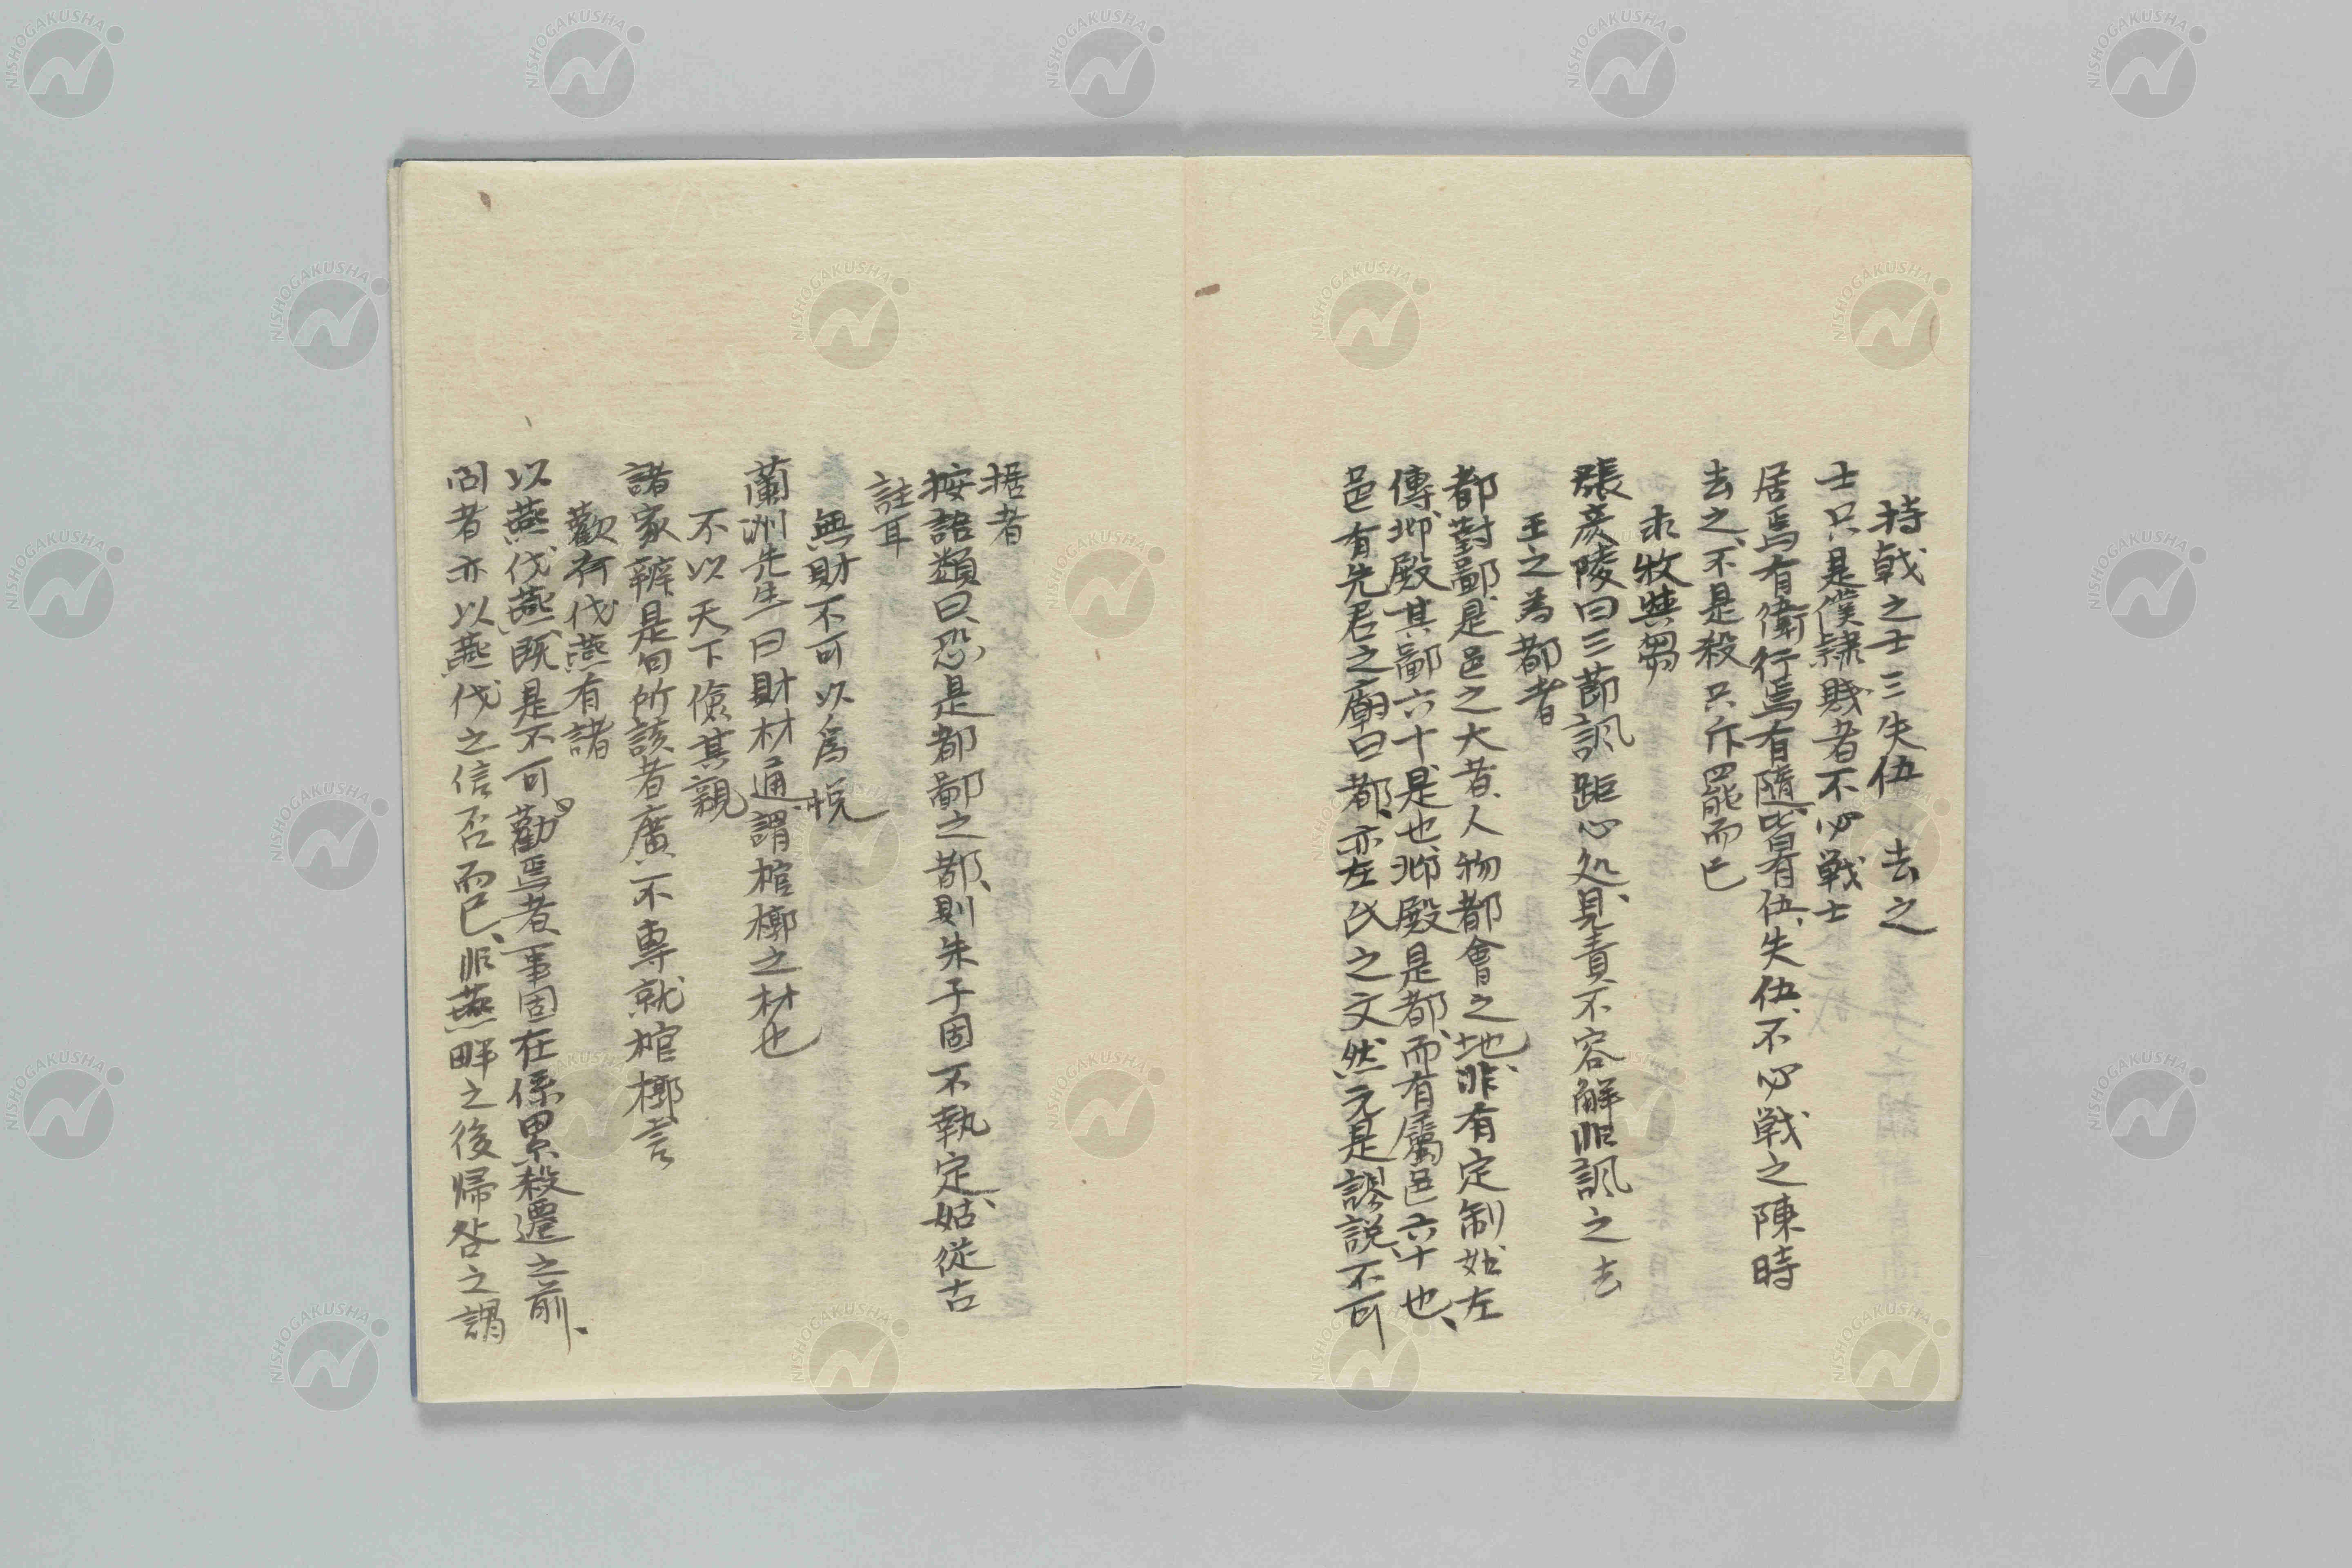 持戟之士三失伍 去之
士只是僕隷賤者不必戦士
居焉有衛行焉有隨、皆有伍、失伍、不必戦之陳時
去之、不是殺只斥罷而已
求牧與芻
張彦陵曰三節諷距心処、見責不容解非諷之去
王之為都者
都對鄙、是邑之大者、人物都會之地、非有定制如左
傳邶殿其鄙六十是也、邶殿是都、而有屬邑六十也、
邑有先君之廟曰都、亦左氏之文然元是謬説、不可
据者
按語類曰、恐是都鄙之都、則朱子固不執定、姑從古
註耳
無財不可以爲悦
蘭洲先生曰財材通、謂棺槨之材也
不以天下儉其親
諸家辨是句所該者廣、不專就棺槨言
勸齊伐燕有諸
以燕伐燕、既是不可勸焉者、事固在係累殺遷之前、
問者亦以燕伐之信否而已、非燕畔之後帰咎之謂
NISHOGAKUSHA